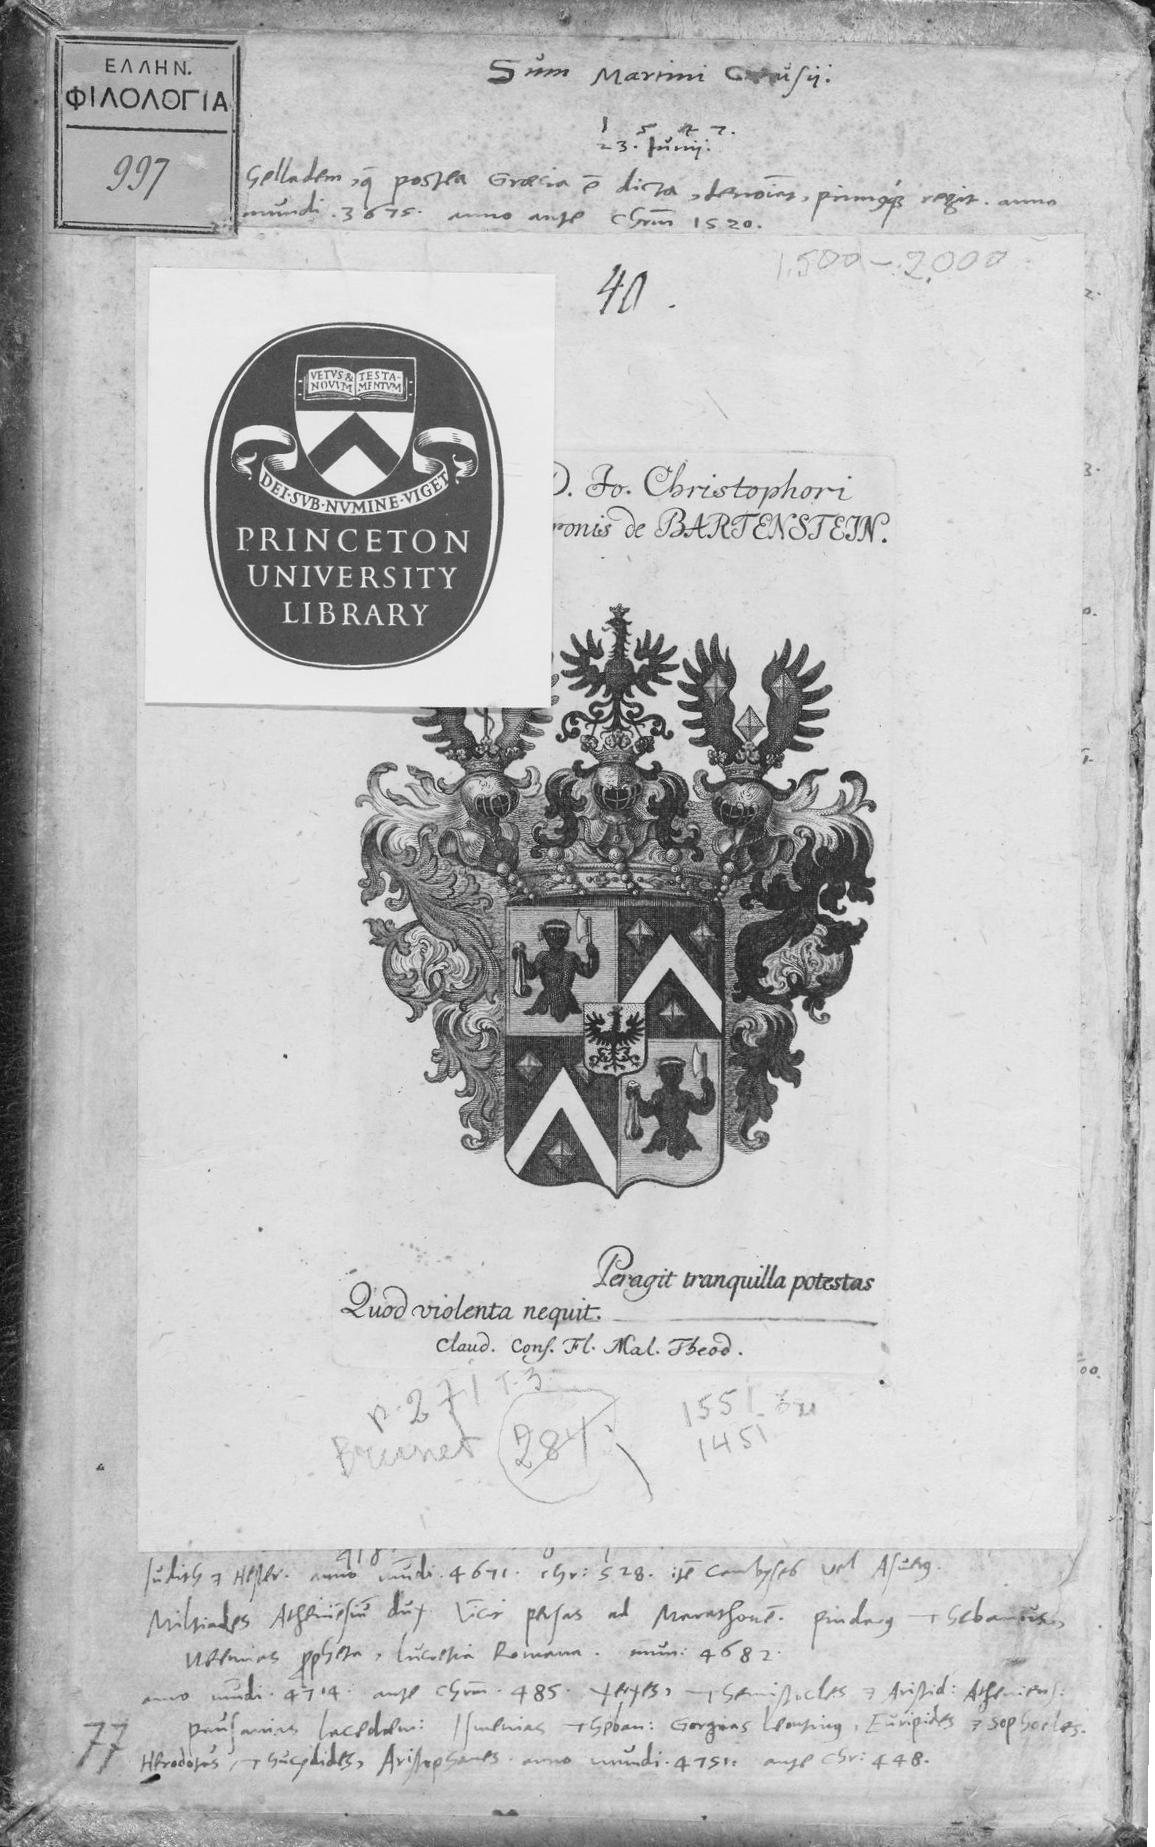 ΕΛΛΗΝ.
ΦΙΛΟΛΟΓΙΑ
997
Sum Martini
1 5 7.
23. Junij.
Helladem, q̃ postea Græcia ẽ dicta, regit. anno
mundi. 3675. anno ante Chrm 1520.
1.500-2.000
40.
VETVS & TESTA-
NOVVM MENTVM
DEI·SVB·NVMINE·VIGET
PRINCETON
UNIVERSITY
LIBRARY
D. Jo. Christophori
ronis de BARTENSTEIN.
Peragit tranquilla potestas
Quod violenta nequit.
Claud. Cons. Fl. Mal. Theod.
p. 271 T. 3
Brunet 284
1551
1451
Judith & Hester. anno mũdi. 4671. chr: 528. itẽ Cambyses vel
Miltiades Atheniẽsiũ dux persas ad Marathonẽ. pindarꝰ Thebanus,
propheta, Lucretia Romana. mun: 4682.
anno mũdi. 4714. ante Chrm. 485. Xerxes, Themistocles & Aristid: Atheniens:
pausanias Lacedæm: Ismenias Theban: Gorgias Leontinꝰ, Euripides & Sophocles.
77
Herodotus, Thucydides, Aristophanes. anno mundi. 4751. ante Chr: 448.